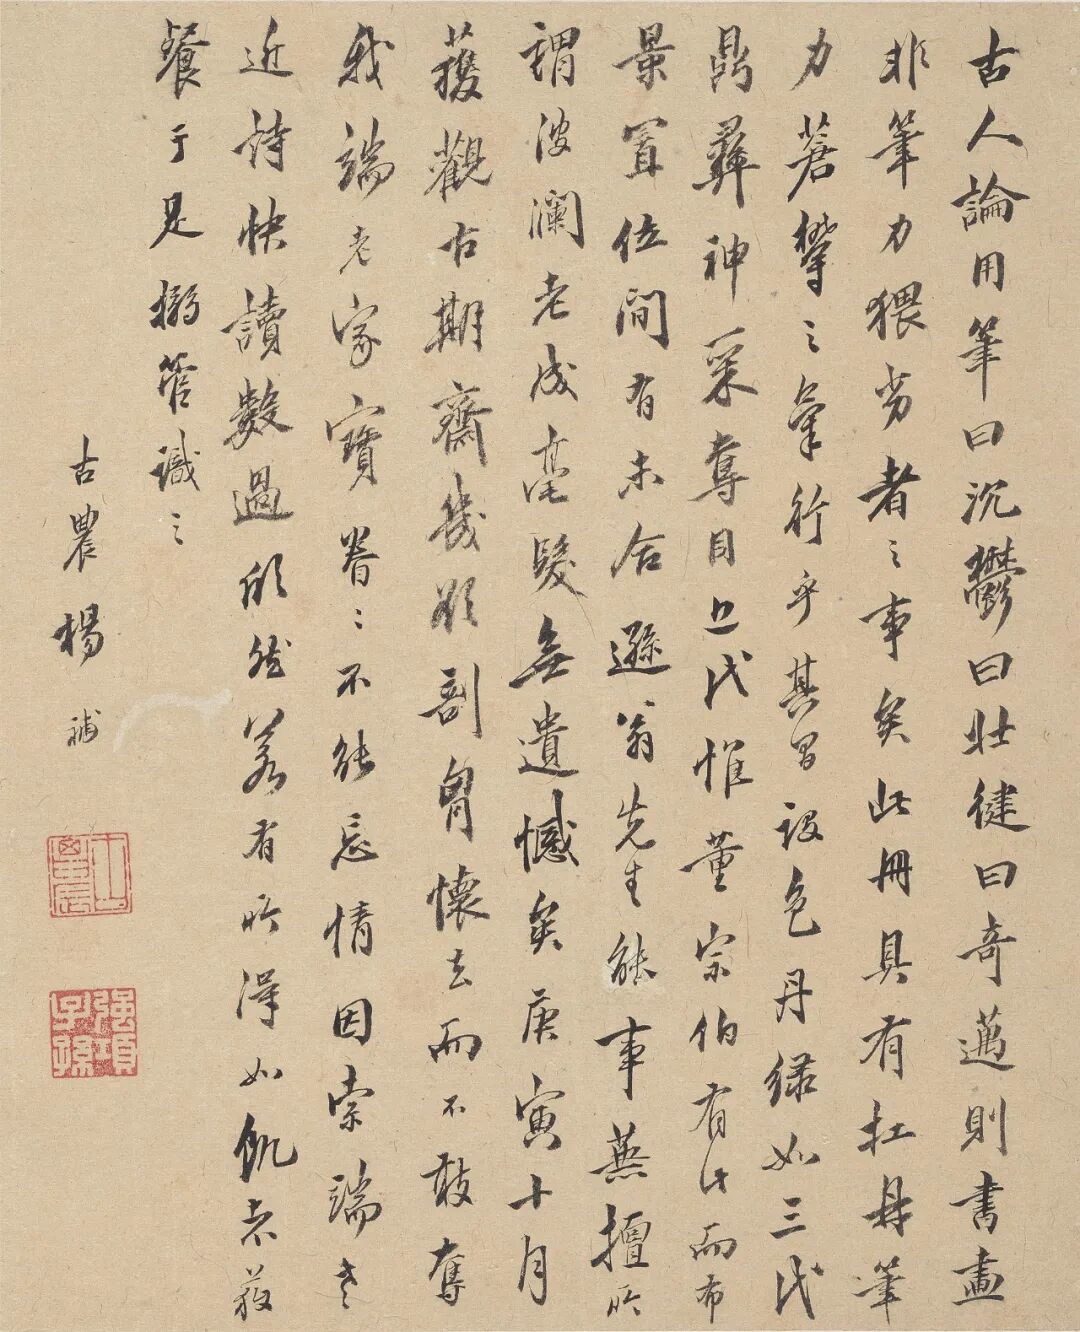 古人論用筆曰沉鬱曰壯健曰奇邁則書畫
非筆力猥劣者之事矣此冊具有扛鼎筆
力蒼鬱之氣行乎其間設色丹綠如三代
鼎彝神采奪目近代惟董宗伯有此而布
景置位間有未合遜翁先生能事兼擅所
謂波瀾老成毫髮無遺憾矣庚寅十月
獲觀古期齋幾欲剖胷懷去而不敢奪
我端老家寶眷眷不能忘情因索端老
近詩快讀數過欣然若有所得如飢者獲
餐于是搦管識之
古農楊補